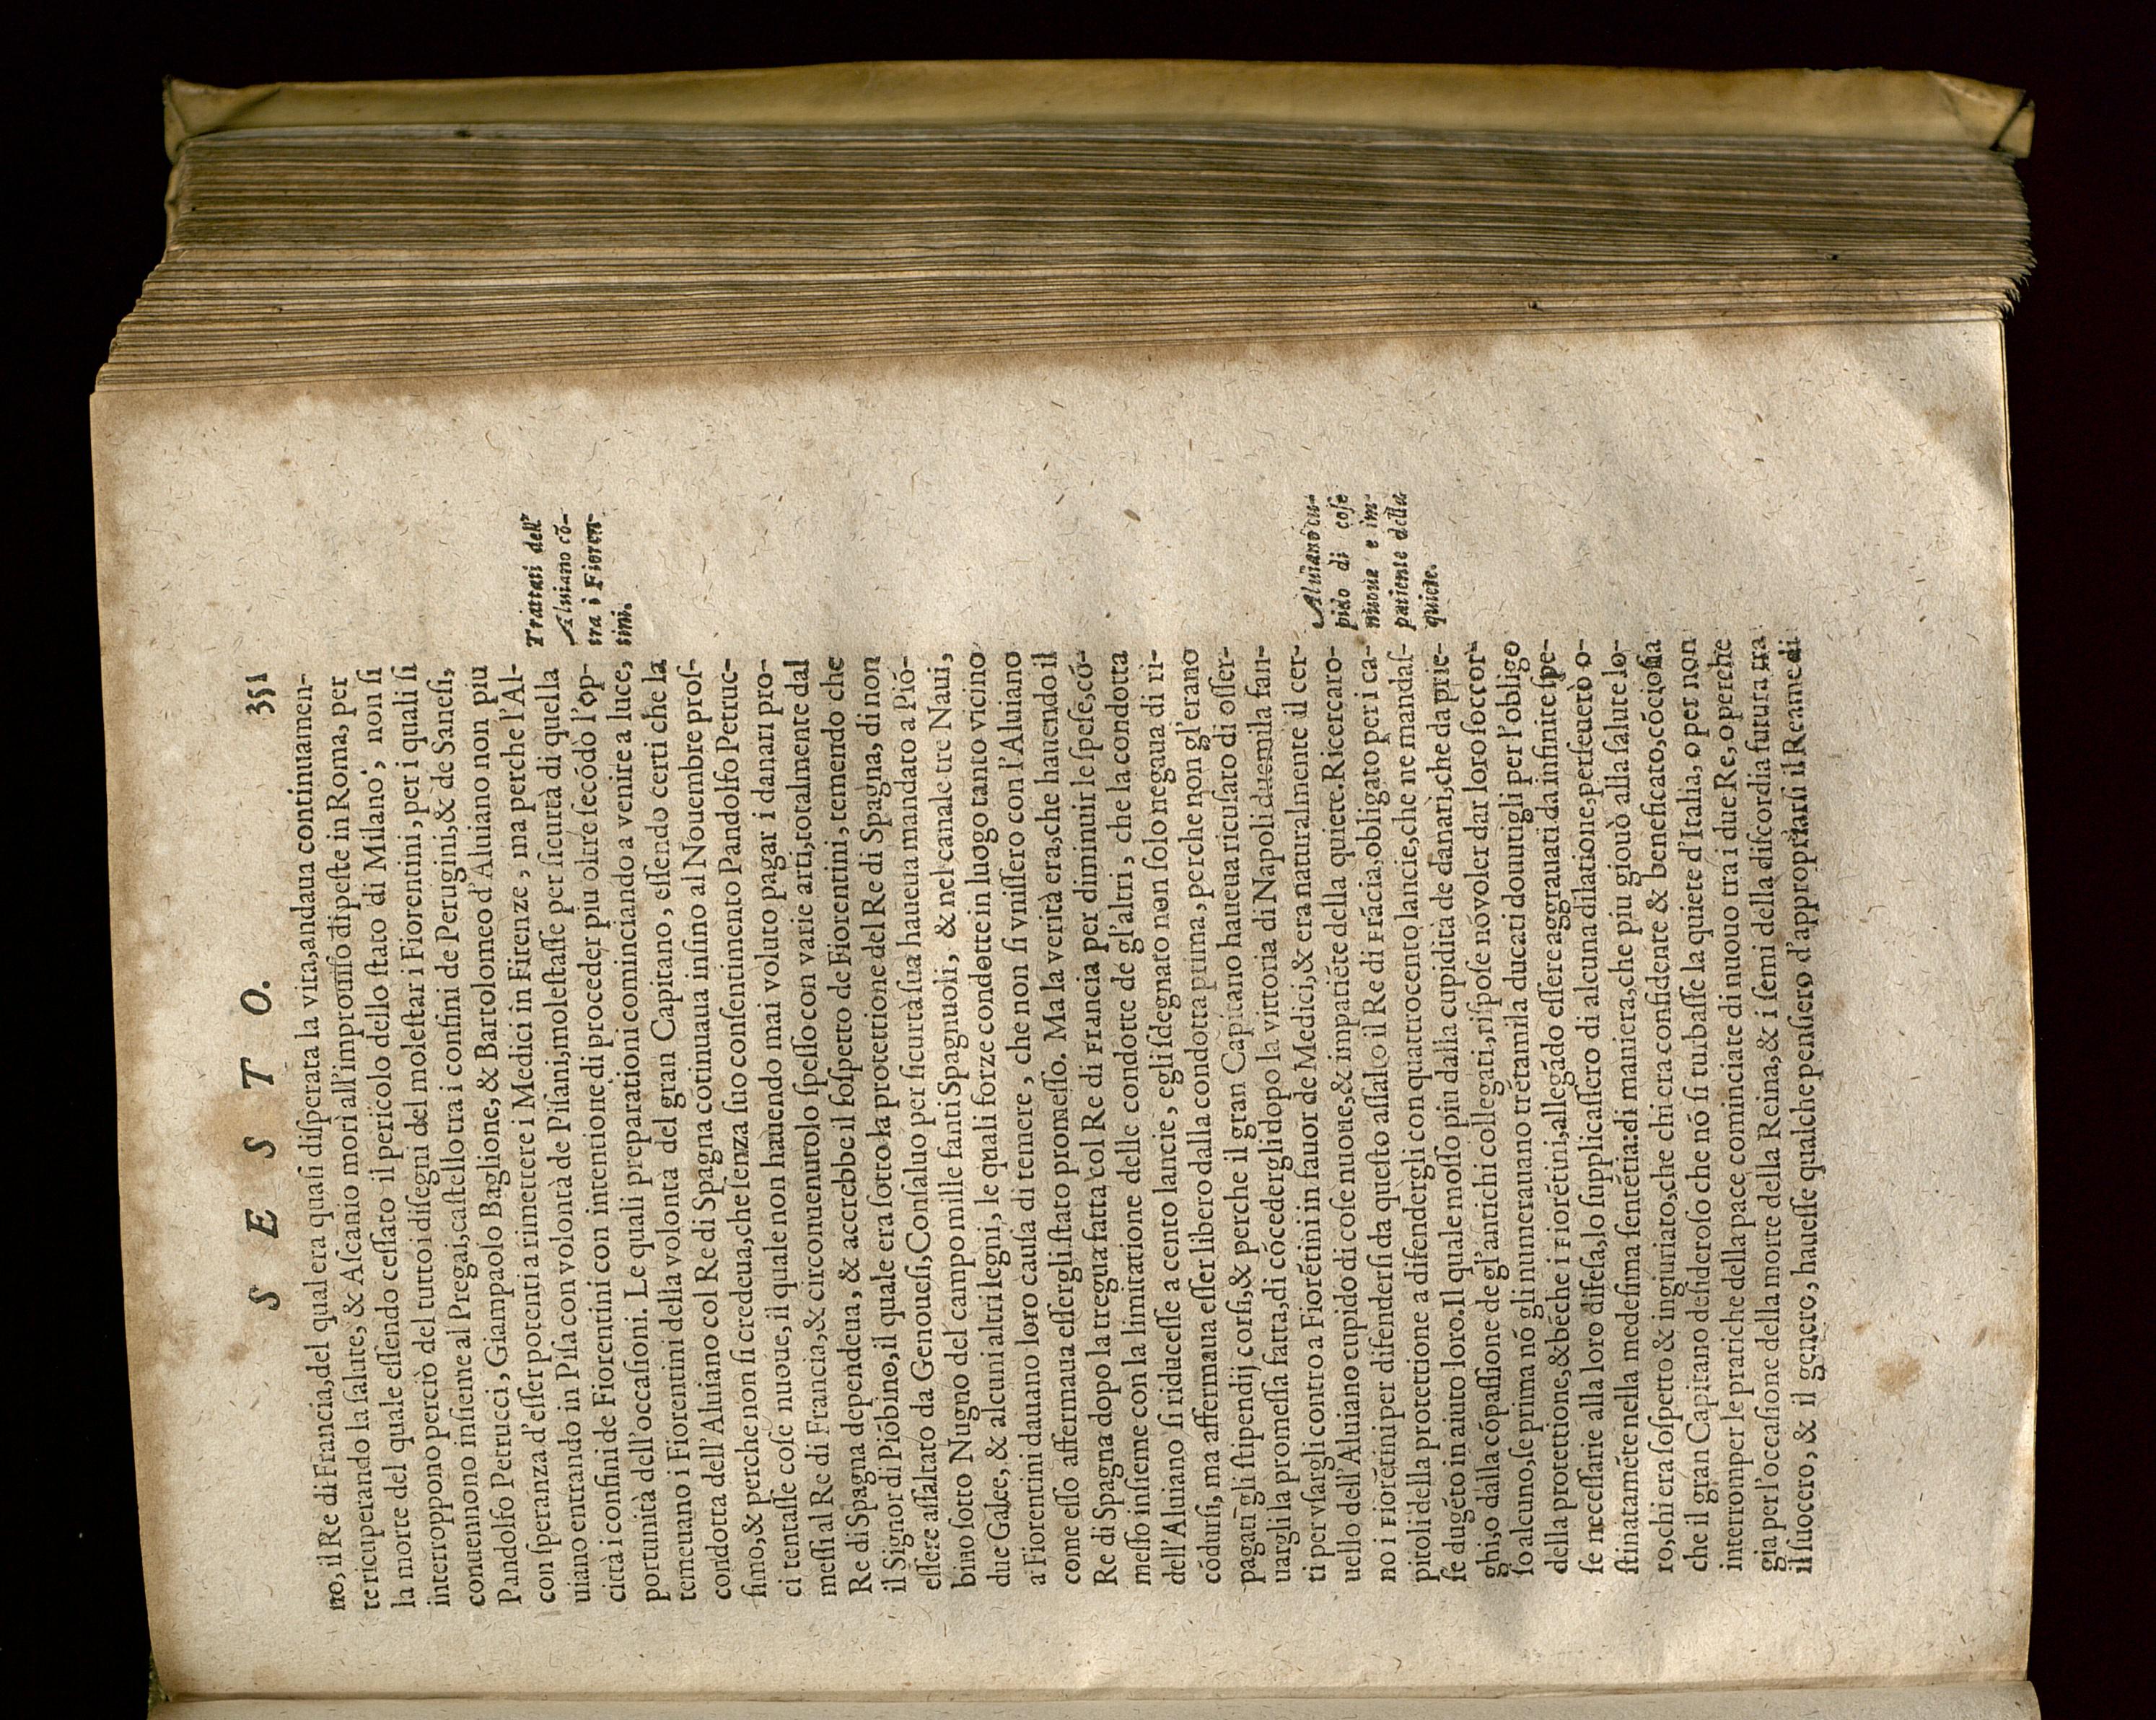 S E S T O. 351
no, il Re di Francia, del qual era quasi disperata la vita, andaua continuamen-
te ricuperando la salute, & Ascanio morì all'improuiso di peste in Roma, per
la morte del quale essendo cessato il pericolo dello stato di Milano, non si
interroppono perciò del tutto i disegni del molestar i Fiorentini, per i quali si
conuennono insieme al Pregai, castello tra i confini de Perugini, & de Sanesi,
Pandolfo Petrucci, Giampaolo Baglione, & Bartolomeo d'Aluiano non piu
con speranza d'esser potenti a rimettere i Medici in Firenze, ma perche l'Al-
uiano entrando in Pisa con volontà de Pisani, molestasse per sicurtà di quella
città i confini de Fiorentini con intentione di proceder piu oltre secódo l'op-
portunità dell'occasioni. Le quali preparationi cominciando a venire a luce,
temeuano i Fiorentini della volontà del gran Capitano, essendo certi che la
condotta dell'Aluiano col Re di Spagna cótinuaua insino al Nouembre pros-
simo, & perche non si credeua, che senza suo consentimento Pandolfo Petruc-
ci tentasse cose nuoue, il quale non hauendo mai voluto pagar i danari pro-
messi al Re di Francia, & circonuenutolo spesso con varie arti, totalmente dal
Re di Spagna dependeua, & accrebbe il sospetto de Fiorentini, temendo che
il Signor di Piòbino, il quale era sotto la protettione del Re di Spagna, di non
essere assaltato da Genouesi, Consaluo per sicurtà sua haueua mandato a Pió-
bino sotto Nugno del campo mille fanti Spagnuoli, & nel canale tre Naui,
due Galee, & alcuni altri legni, le quali forze condotte in luogo tanto vicino
a Fiorentini dauano loro causa di temere, che non si vnissero con l'Aluiano
come esso affermaua essergli stato promesso. Ma la verità era, che hauendo il
Re di Spagna dopo la tregua fatta col Re di Francia per diminuir le spese, có-
messo insieme con la limitatione delle condotte de gl'altri, che la condotta
dell'Aluiano si riducesse a cento lancie, egli sdegnato non solo negaua di ri-
códursi, ma affermaua esser libero dalla condotta prima, perche non gl'erano
pagati gli stipendij corsi, & perche il gran Capitano haueua ricusato di osser-
uargli la promessa fatta, di cócedergli dopo la vittoria di Napoli duemila fan-
ti per vsargli contro a Fiorétini in fauor de Medici, & era naturalmente il cer-
uello dell'Aluiano cupido di cose nuoue, & impatiéte della quiete. Ricercaro-
no i Fiorétini per difendersi da questo assalto il Re di Fráncia, obligato per i ca-
pitoli della protettione a difendergli con quattrocento lancie, che ne mandas-
se dugéto in aiuto loro. Il quale mosso piu dalla cupidità de danari, che da prie-
ghi, o dalla cópassione de gl'antichi collegati, rispose nó voler dar loro soccor-
so alcuno, se prima nó gli numerauano trétamila ducati douutigli per l'obligo
della protettione, & béche i Fiorétini, allegádo essere aggrauati da infinite spe-
se necessarie alla loro difesa, lo supplicassero di alcuna dilatione, perseuerò o-
stinataméte nella medesima sentétia: di maniera, che piu giouò alla salute lo-
ro, chi era sospetto & ingiuriato, che chi era confidente & beneficato, cóciosia
che il gran Capitano desideroso che nó si turbasse la quiete d'Italia, o per non
interromper le pratiche della pace cominciate di nuouo tra i due Re, o perche
gia per l'occasione della morte della Reina, & i semi della discordia futura tra
il suocero, & il genero, hauesse qualche pensiero d'appropriarsi il Reame di
Trattati dell'
Aluiano có-
tra i Fioren-
tini.
Aluiano cu-
pido di cose
nuoue e im-
patiente della
quiete.